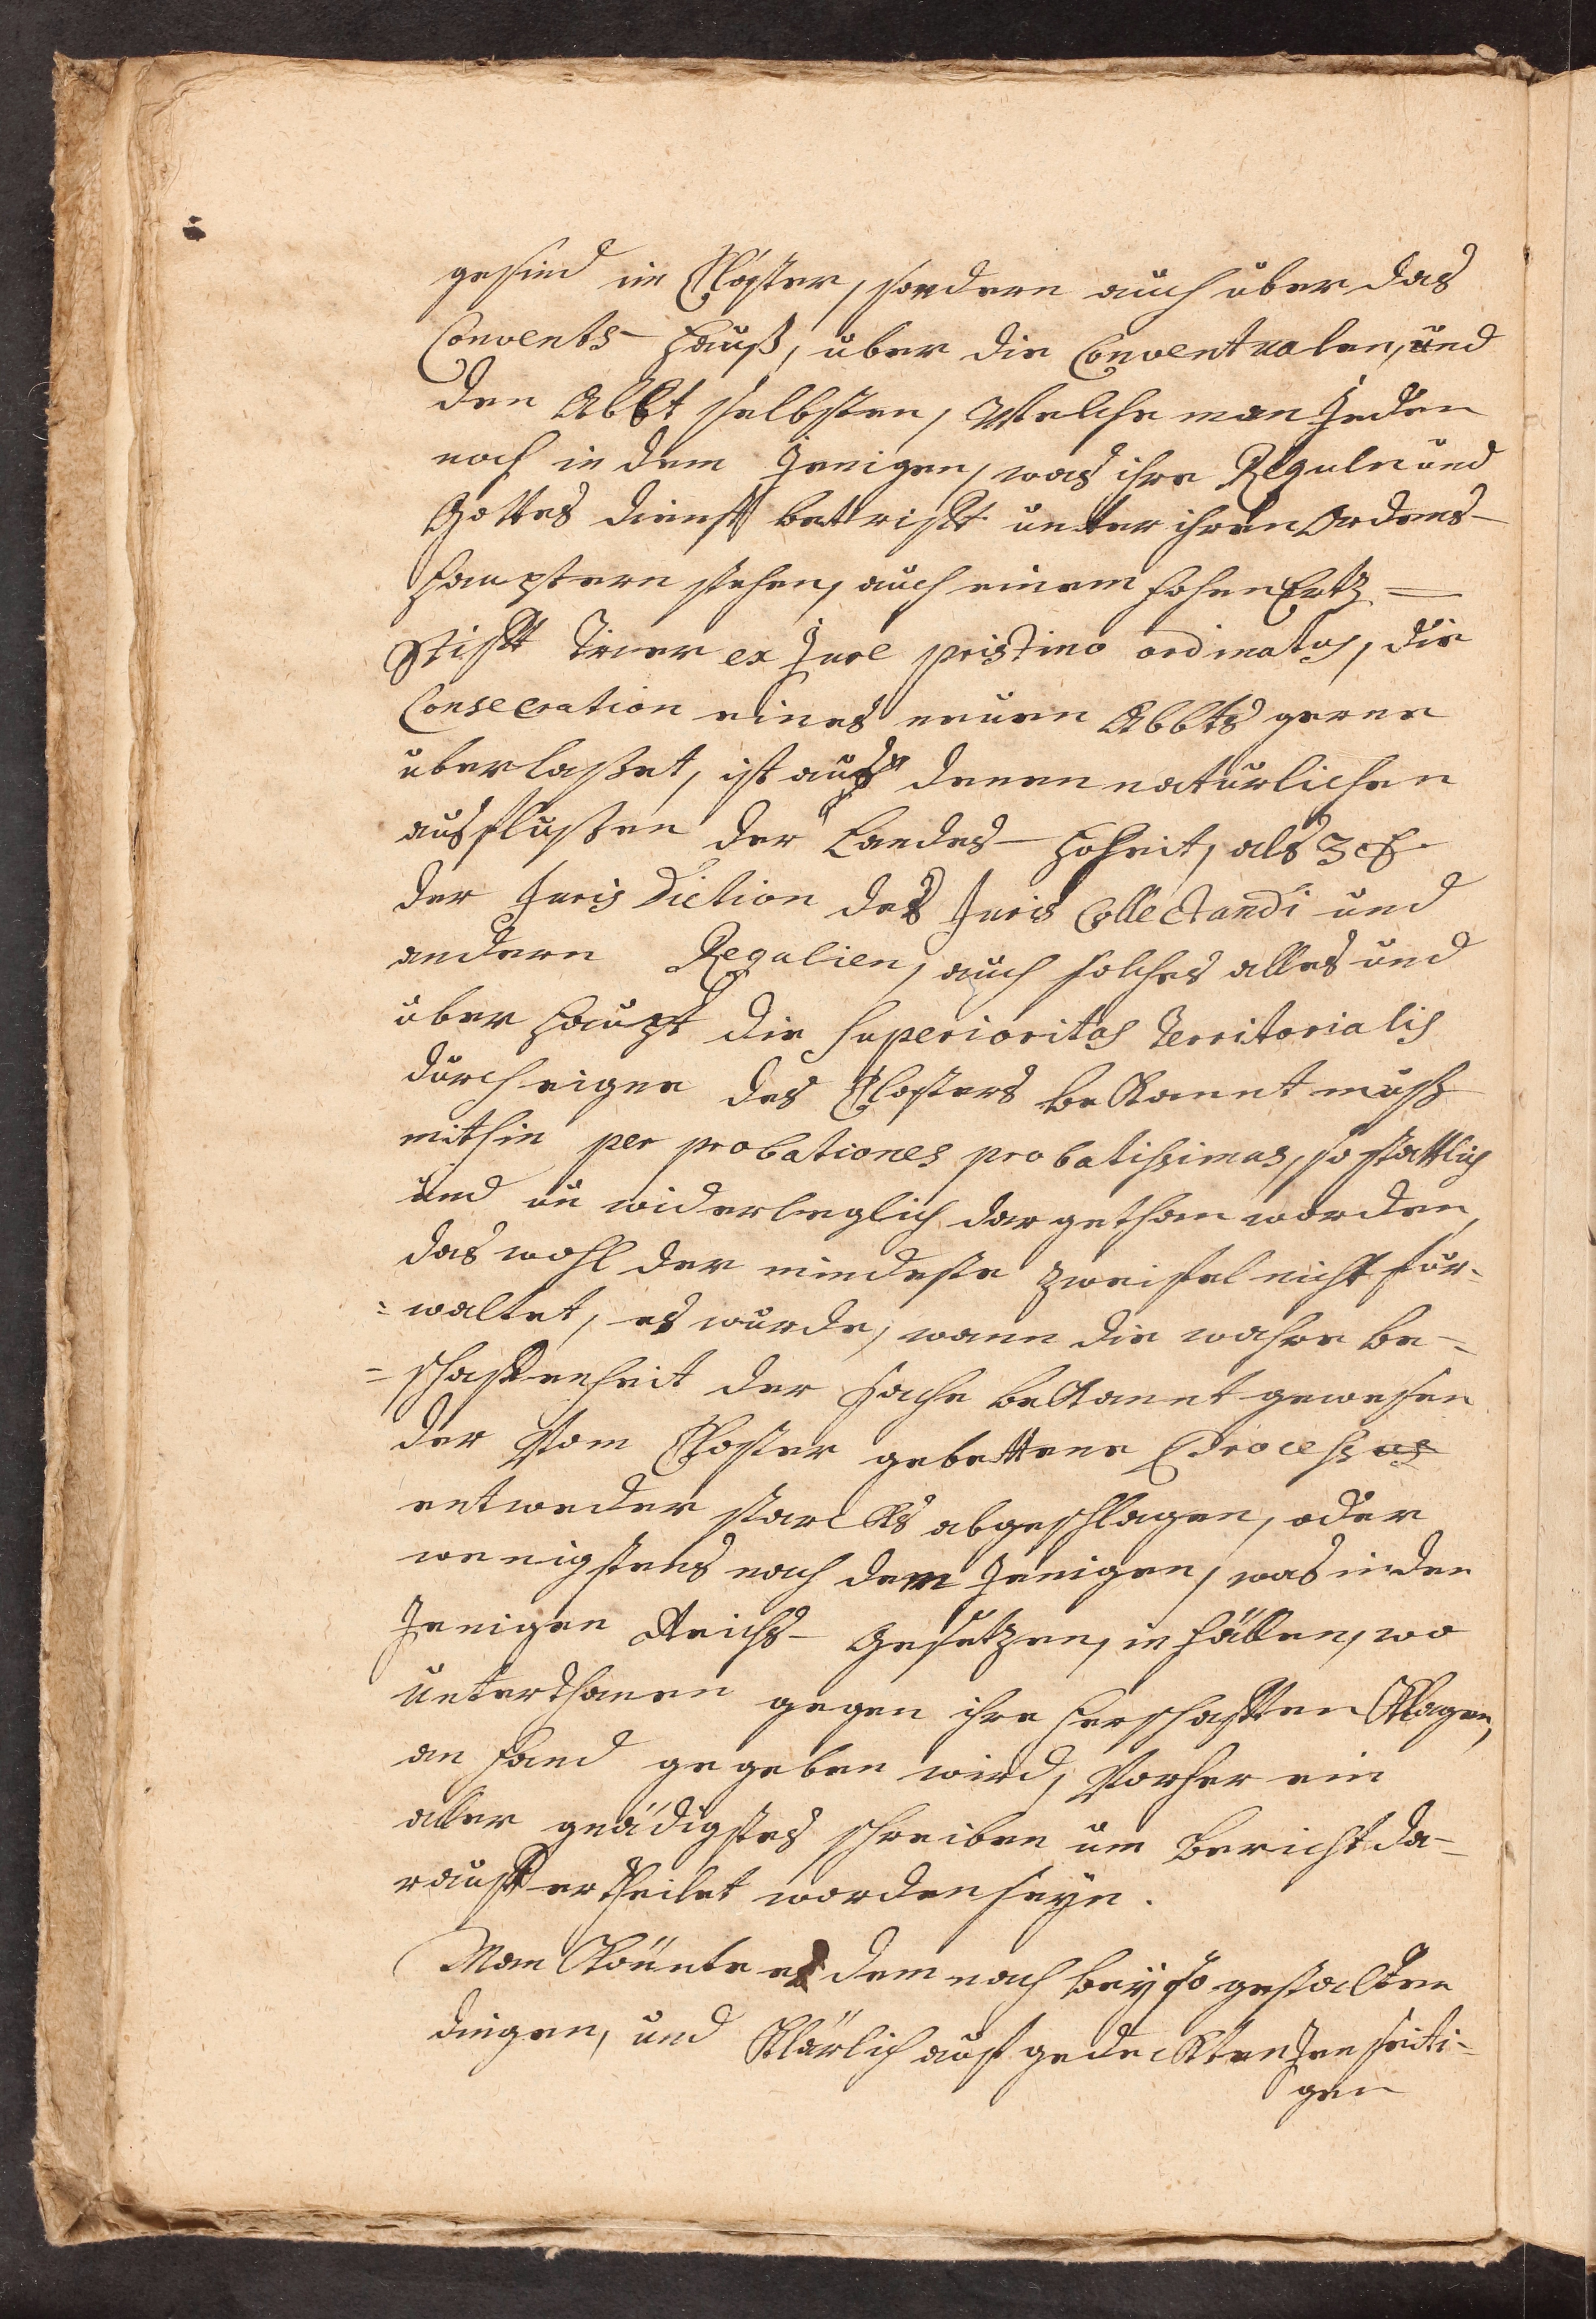 gesind im Closter, sondern auch über das
Convents- Hauß, über die Conventualen, und
den Abbt selbsten, Welche man Jeden
noch in dem Jenigen, was ihre Reguln und
Gottes dienst betrifft unter ihren Ordens-
Häuptern stehen, auch einem hohen Ertz=
Stifft Trier ex Jure pristino ordinatus, die
Consecration eines neuen Abbts gerne
überlaßet, ist auß denen natürlichen
ausflußen der Landes- Hoheit, als z. E.
der Juris Diction des Juris Collectandi und
andern Regalien, auch solches alles und
über Haupt die Superioritas Territorialis
durch eigne des Closters bekanntnuß
mithin per probationes probatißimas, so stattlich
und un widerleglich dar gethan worden,
das wohl der mindeste zweifel nicht für-
=waltet, es würde, wann die wahre be-
=schaffenheit der Sache bekannt gewesen
der Vom Closter gebettene Process
entweder starcks abgeschlagen, oder
wenigstens nach dem Jenigen, was in den
Jenigen Reichs- Gesetzen, in fällen, wo
Unterthanen gegen ihre Herschafften Klagen,
an Hand gegeben wird, Vorher ein
aller gnädigstes schreiben um Bericht da-
rauff ertheilet worden seyn.
Man könnte es dem nach bey so gestalten
dingen, und Klärlich auf gedeckten Jenseiti-
gen